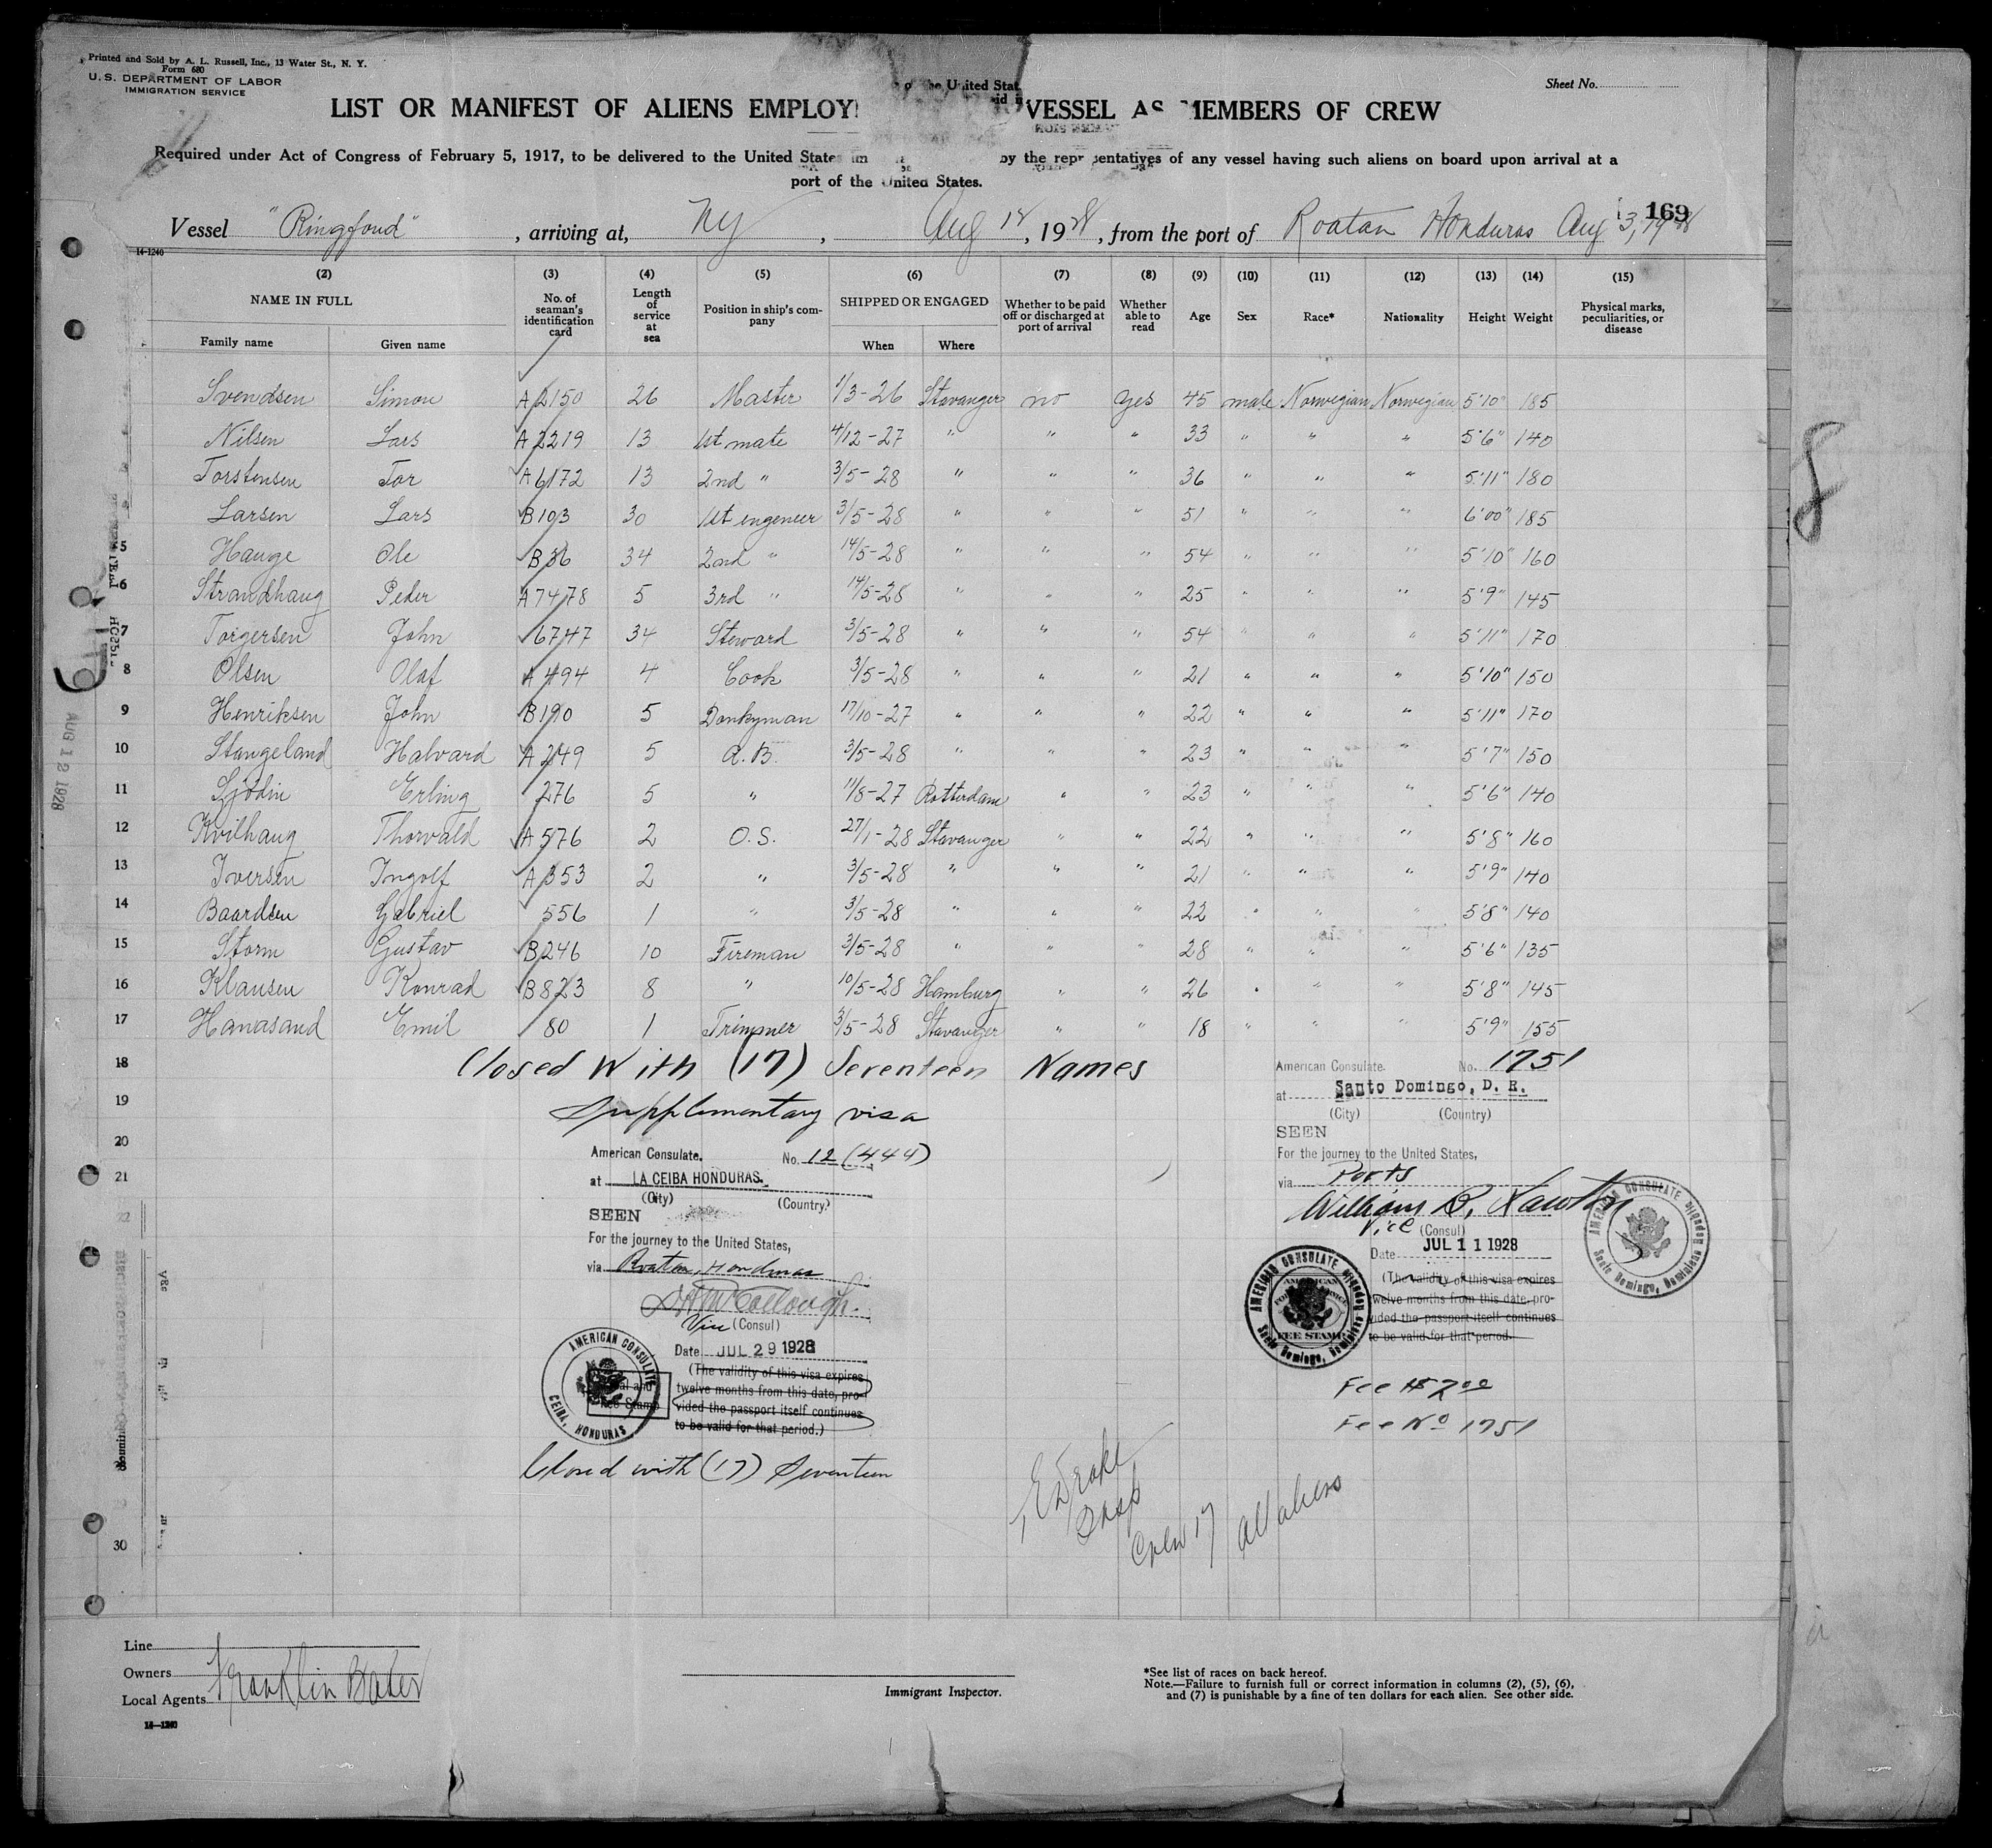 Printed and Sold by A. L. Russell, Inc., 13 Water St., N. Y.
Form 680
U. S. DEPARTMENT OF LABOR
IMMIGRATION SERVICE
of the United Stat
Sheet No.
LIST OR MANIFEST OF ALIENS EMPLOY VESSEL AS MEMBERS OF CREW
Required under Act of Congress of February 5, 1917, to be delivered to the United States Im by the representatives of any vessel having such aliens on board upon arrival at a
port of the United States.
169
Vessel "Ringfond", arriving at, NY, Aug 12, 1928, from the port of Roatan Honduras Aug 3, 1928
14-1240
(2) (3) (4) (5) (6) (7) (8) (9) (10) (11) (12) (13) (14) (15)
NAME IN FULL No. of seaman's identification card Length of service at sea Position in ship's company SHIPPED OR ENGAGED Whether to be paid off or discharged at port of arrival Whether able to read Age Sex Race* Nationality Height Weight Physical marks, peculiarities, or disease
Family name Given name When Where
Svendsen Simon A 2150 26 Master 1/3-26 Stavanger no yes 45 male Norwegian Norwegian 5'10" 185
Nilsen Lars A 2219 13 1st mate 4/12-27 " " " 33 " " " 5'6" 140
Torstensen Tor A 6172 13 2nd " 3/5-28 " " " 36 " " " 5'11" 180
Larsen Lars B 103 30 1st engeneer 3/5-28 " " " 51 " " " 6'00" 185
5 Hauge Ole B 36 34 2nd " 14/5-28 " " " 54 " " " 5'10" 160
6 Strandhaug Peder A 7478 5 3rd " 14/5-28 " " " 25 " " " 5'9" 145
7 Torgersen John 6747 34 Steward 3/5-28 " " " 54 " " " 5'11" 170
8 Olsen Olaf A 494 4 Cook 3/5-28 " " " 21 " " " 5'10" 150
9 Henriksen John B 190 5 Donkyman 17/10-27 " " " 22 " " " 5'11" 170
10 Stangeland Halvard A 249 5 A.B. 3/5-28 " " " 23 " " " 5'7" 150
11 Sjödin Erling 276 5 " 11/8-27 Rotterdam " " 23 " " " 5'6" 140
12 Kvilhaug Thorvald A 576 2 O.S. 27/1-28 Stavanger " " 22 " " " 5'8" 160
13 Iversen Ingolf A 353 2 " 3/5-28 " " " 21 " " " 5'9" 140
14 Baardsen Gabriel 556 1 " 3/5-28 " " " 22 " " " 5'8" 140
15 Storm Gustav B 246 10 Fireman 3/5-28 " " " 28 " " " 5'6" 135
16 Klausen Konrad B 823 8 " 10/5-28 Hamburg " " 26 " " " 5'8" 145
17 Hanasand Emil 80 1 Trimmer 3/5-28 Stavanger " " 18 " " " 5'9" 155
18 Closed With (17) Seventeen Names
19 Supplimentary visa
20
21
22
30
American Consulate. No. 12 (444)
at LA CEIBA HONDURAS.
(City) (Country)
SEEN
For the journey to the United States,
via Roatan, Honduras
Vice (Consul)
Date JUL 29 1928
(The validity of this visa expires
twelve months from this date, pro-
vided the passport itself continues
to be valid for that period.)
AMERICAN CONSULATE
CEIBA, HONDURAS
Closed with (17) Seventeen
American Consulate. No. 1751
at Santo Domingo, D. R.
(City) (Country)
SEEN
For the journey to the United States,
via Ports
William B. Lawton
Vice (Consul)
Date JUL 11 1928
(The validity of this visa expires
twelve months from this date, pro-
vided the passport itself continues
to be valid for that period.
AMERICAN CONSULATE
Santo Domingo, Dominican Republic
AMERICAN FOREIGN SERVICE
FEE STAMP
AMERICAN CONSULATE
Santo Domingo, Dominican Republic
Fee $2.00
Fee No 1751
E Drake
Insp
Crew 17 All aliens
AUG 12 1928
8
Line
Owners
Local Agents Franklin Baker
14-1240
Immigrant Inspector.
*See list of races on back hereof.
Note.—Failure to furnish full or correct information in columns (2), (5), (6),
and (7) is punishable by a fine of ten dollars for each alien. See other side.